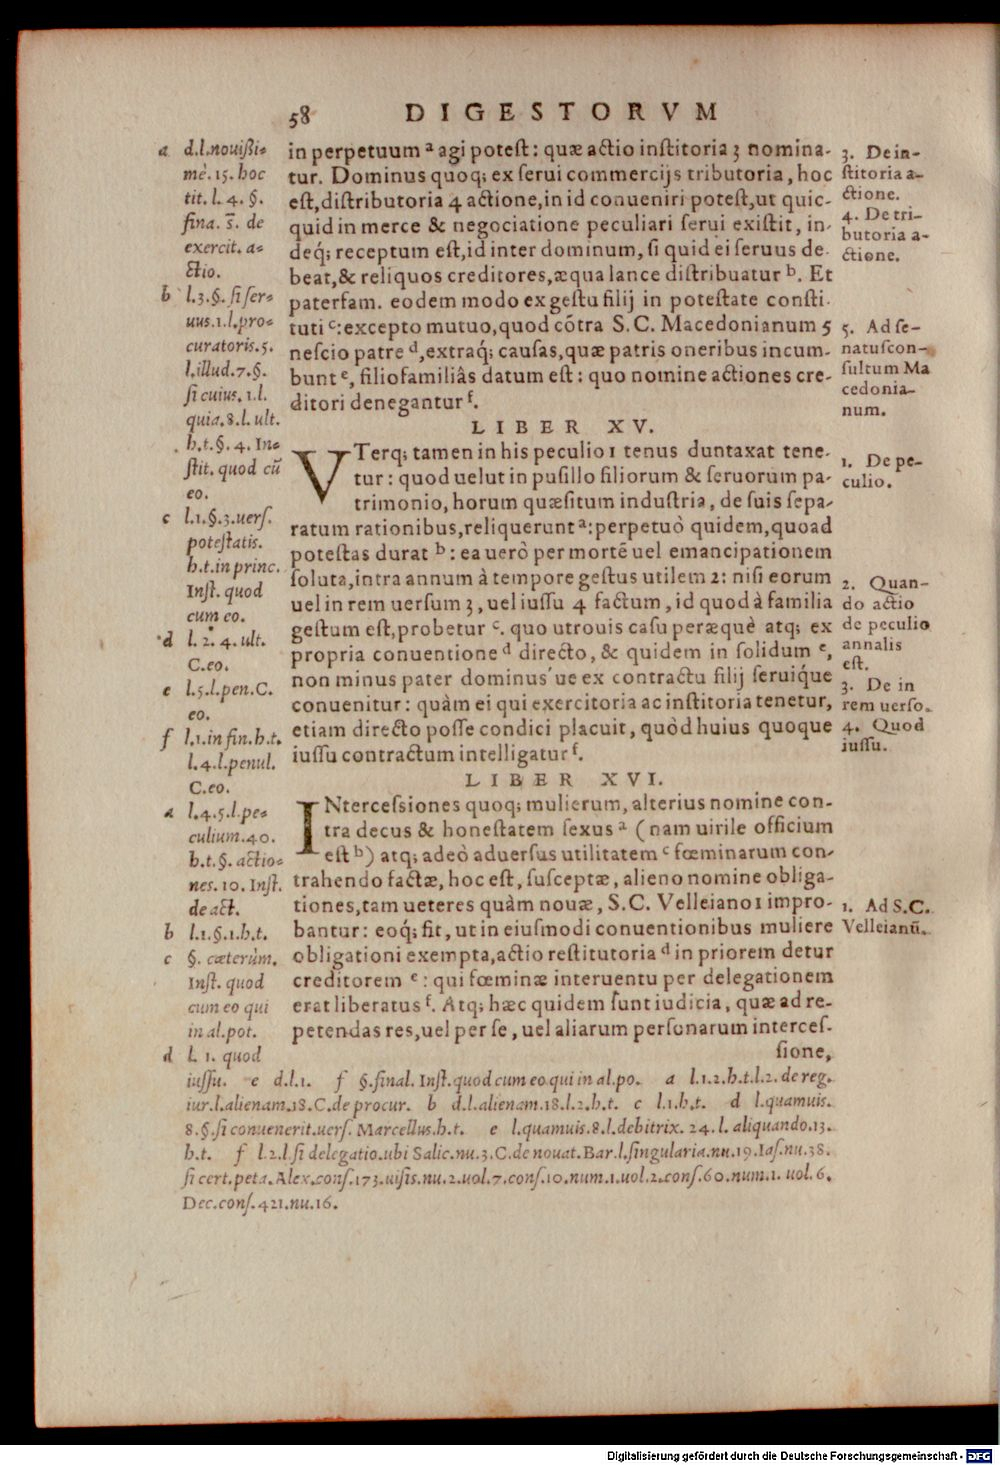 58 DIGESTORVM
in perpetuum a agi potest: quæ actio institoria 3 nomina-
tur. Dominus quoq; ex serui commercijs tributoria, hoc
est, distributoria 4 actione, in id conueniri potest, ut quic-
quid in merce & negociatione peculiari serui existit, in-
deq́; receptum est, id inter dominum, si quid ei seruus de
beat, & reliquos creditores, æqua lance distribuatur b. Et
paterfam. eodem modo ex gestu filij in potestate consti-
tuti c: excepto mutuo, quod cōtra S. C. Macedonianum 5
nescio patre d, extraq́; causas, quæ patris oneribus incum-
bunt e, filiofamiliâs datum est: quo nomine actiones cre-
ditori denegantur f.
LIBER XV.
VTerq; tamen in his peculio 1 tenus duntaxat tene-
tur: quod uelut in pusillo filiorum & seruorum pa-
trimonio, horum quæsitum industria, de suis sepa-
ratum rationibus, reliquerunt a: perpetuò quidem, quoad
potestas durat b: ea uerò per mortē uel emancipationem
soluta, intra annum à tempore gestus utilem 2: nisi eorum
uel in rem uersum 3, uel iussu 4 factum, id quod à familia
gestum est, probetur c. quo utrouis casu peræquè atq; ex
propria conuentione d directo, & quidem in solidum e,
non minus pater dominus´ue ex contractu filij seruiq́ue
conuenitur: quàm ei qui exercitoria ac institoria tenetur,
etiam directo posse condici placuit, quòd huius quoque
iussu contractum intelligatur f.
LIBER XVI.
INtercessiones quoq; mulierum, alterius nomine con-
tra decus & honestatem sexus a (nam uirile officium
est b) atq; adeò aduersus utilitatem c fœminarum con-
trahendo factæ, hoc est, susceptæ, alieno nomine obliga-
tiones, tam ueteres quàm nouæ, S. C. Velleiano 1 impro-
bantur: eoq́; fit, ut in eiusmodi conuentionibus muliere
obligationi exempta, actio restitutoria d in priorem detur
creditorem e: qui fœminæ interuentu per delegationem
erat liberatus f. Atq; hæc quidem sunt iudicia, quæ ad re-
petendas res, uel per se, uel aliarum personarum interces-
sione,
a d.l.nouißi-
mè. 15. hoc
tit. l. 4. §.
fina. s̄. de
exercit. a-
ctio.
b l.3.§. si ser-
uus.1.l.pro-
curatoris.5.
l.illud.7.§.
si cuius. 1.l.
quia.8.l. ult.
h.t.§. 4. In-
stit. quod cū
eo.
c l.1.§.3.uers.
potestatis.
h.t.in princ.
Inst. quod
cum eo.
d l. 2. 4. ult.
C.eo.
e l.5.l.pen.C.
eo.
f l.1.in fin.h.t.
l.4.l.penul.
C.eo.
a l.4.5.l.pe-
culium.40.
h.t.§. actio-
nes. 10. Inst.
de act.
b l.1.§.1.h.t.
c §. cæterùm.
Inst. quod
cum eo qui
in al.pot.
d l. 1. quod
iussu. e d.l.1. f §.final. Inst.quod cum eo qui in al.po. a l.1.2.h.t.l.2. de reg.
iur.l.alienam.18.C.de procur. b d.l.alienam.18.l.2.h.t. c l.1.h.t. d l.quamuis.
8.§.si conuenerit.uers. Marcellus.h.t. e l.quamuis.8.l.debitrix. 24.l. aliquando.13.
h.t. f l.2.l.si delegatio.ubi Salic.nu.3.C.de nouat.Bar.l.singularia.nu.19.Ias.nu.38.
si cert.peta.Alex.cons.173.uisis.nu.2.uol.7.cons.10.num.1.uol.2.cons.60.num.1. uol.6.
Dec.cons.421.nu.16.
3. De in-
stitoria a-
ctione.
4. De tri-
butoria a-
ctione.
5. Ad se-
natuscon-
sultum Ma
cedonia-
num.
1. De pe-
culio.
2. Quan-
do actio
de peculio
annalis
est.
3. De in
rem uerso.
4. Quod
iussu.
1. Ad S.C.
Velleianū.
Digitalisierung gefördert durch die Deutsche Forschungsgemeinschaft - DFG